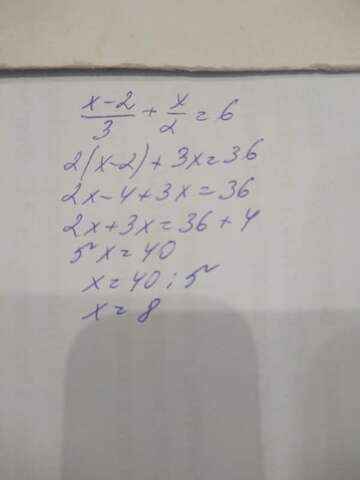 x-2/3 + x/2 = 6
2(x-2) + 3x = 36
2x-4+3x = 36
2x+3x = 36+4
5x = 40
x = 40 : 5
x = 8